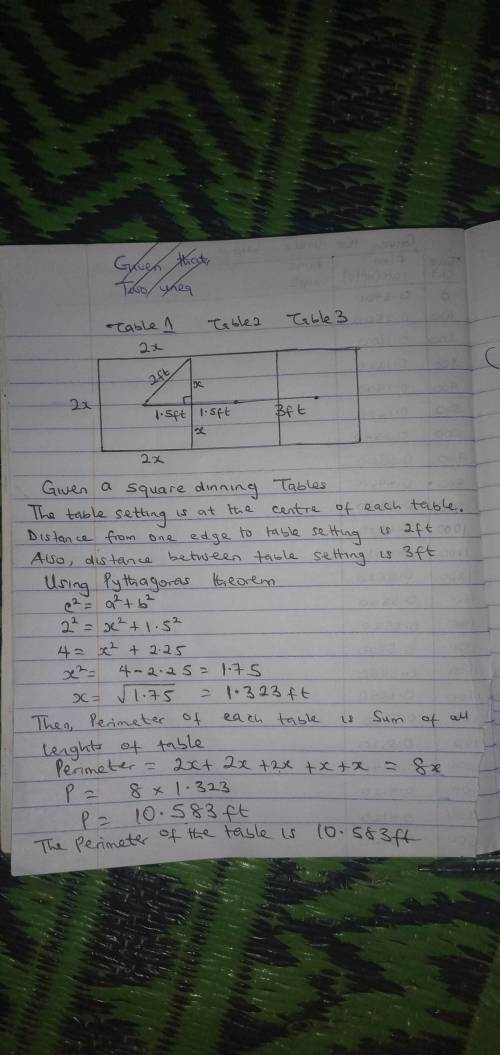 Given that,
Two, uneq
Table 1 Table2 Table3
2x
2ft
x
2x
1.5ft 1.5ft 3ft
x
2x
Given a square dinning Tables
The table setting is at the centre of each table.
Distance from one edge to table setting is 2ft
Also, distance between table setting is 3ft
Using Pythagoras theorem
c² = a² + b²
2² = x² + 1.5²
4 = x² + 2.25
x² = 4 - 2.25 = 1.75
x = √1.75 = 1.323ft
Then, Perimeter of each table is Sum of all
lenghts of table
Perimeter = 2x + 2x + 2x + x + x = 8x
P = 8 × 1.323
P = 10.583ft
The Perimeter of the table is 10.583ft